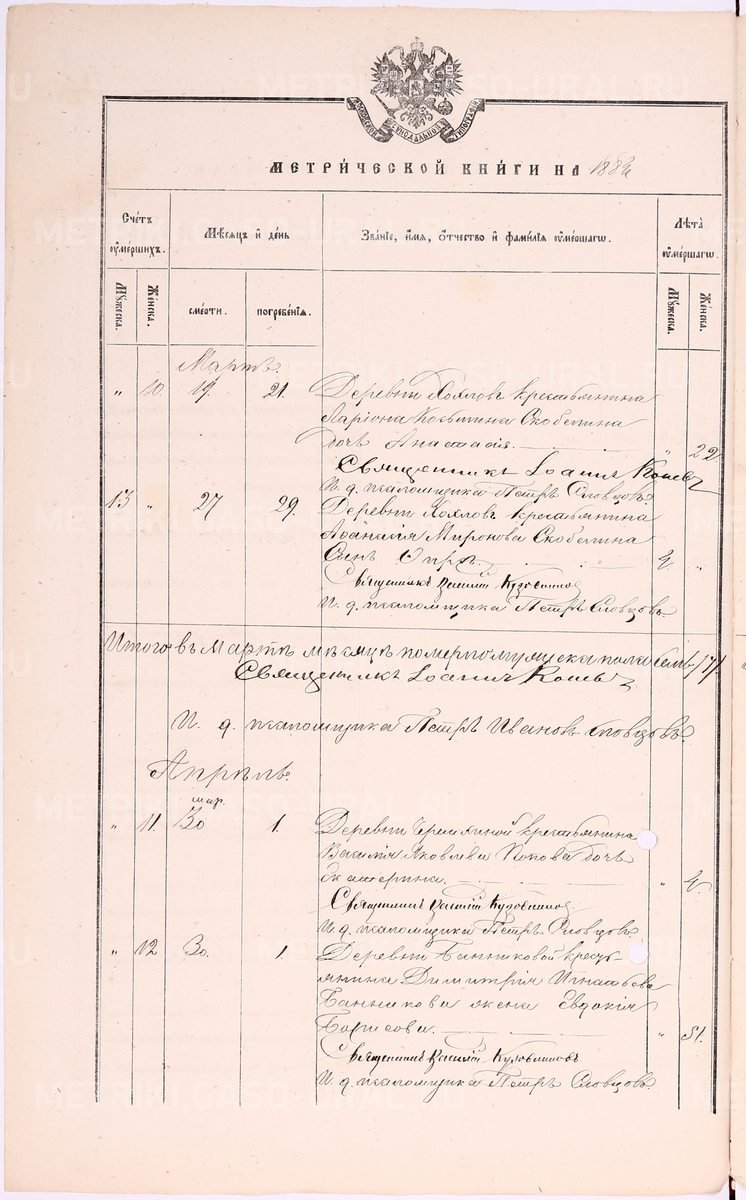 МОСКОВСКОЙ СѴНОДАЛЬНОЙ ТИПОГРАФІИ
МЕТРИ́ЧЕСКОЙ КНИ́ГИ НА 188
Сче́тъ ѹ҆ме́ршихъ.
Мѣ́сѧцъ и҆ де́нь
Зва́нїе, и҆́мѧ, ѻ҆́тчество и҆ фамі́лїѧ ѹ҆ме́ршагѡ.
Лѣта̀ ѹ҆ме́ршагѡ.
Мꙋ́жеска.
Же́нска.
сме́рти.
погребе́нїѧ.
Мꙋ́жеска.
Же́нска.
Мартъ.
„ 10. 19. 21. Деревни Хохловъ крестьянина
Ларіона Косьмина Скобелина
дочь Анастасія. „ 22
Священникъ Іоаннъ
И. д. псаломщика Петръ Словцовъ
13 „ 27 29. Деревни Хохловъ крестьянина
Аѳанасія Миронова Скобелина
Сынъ „
Священникъ Василій
И. д. псаломщика Петръ Словцовъ.
Итого въ Мартѣ мѣсяцѣ померло мужеска пола
Священникъ Іоаннъ
И. д. псаломщика Петръ Ивановъ Словцовъ.
Апрѣль.
мар.
„ 11. 30 1. Деревни крестьянина
Василія Яковлева Попова дочь
Екатерина. „
Священникъ Василій
И. д. псаломщика Петръ Словцовъ.
„ 12 30. 1. Деревни Банниковой кресть-
янина Димитрія Игнатьева
Банникова жена Евдокія
Борисова. „ 51.
Священникъ Василій
И. д. псаломщика Петръ Словцовъ.